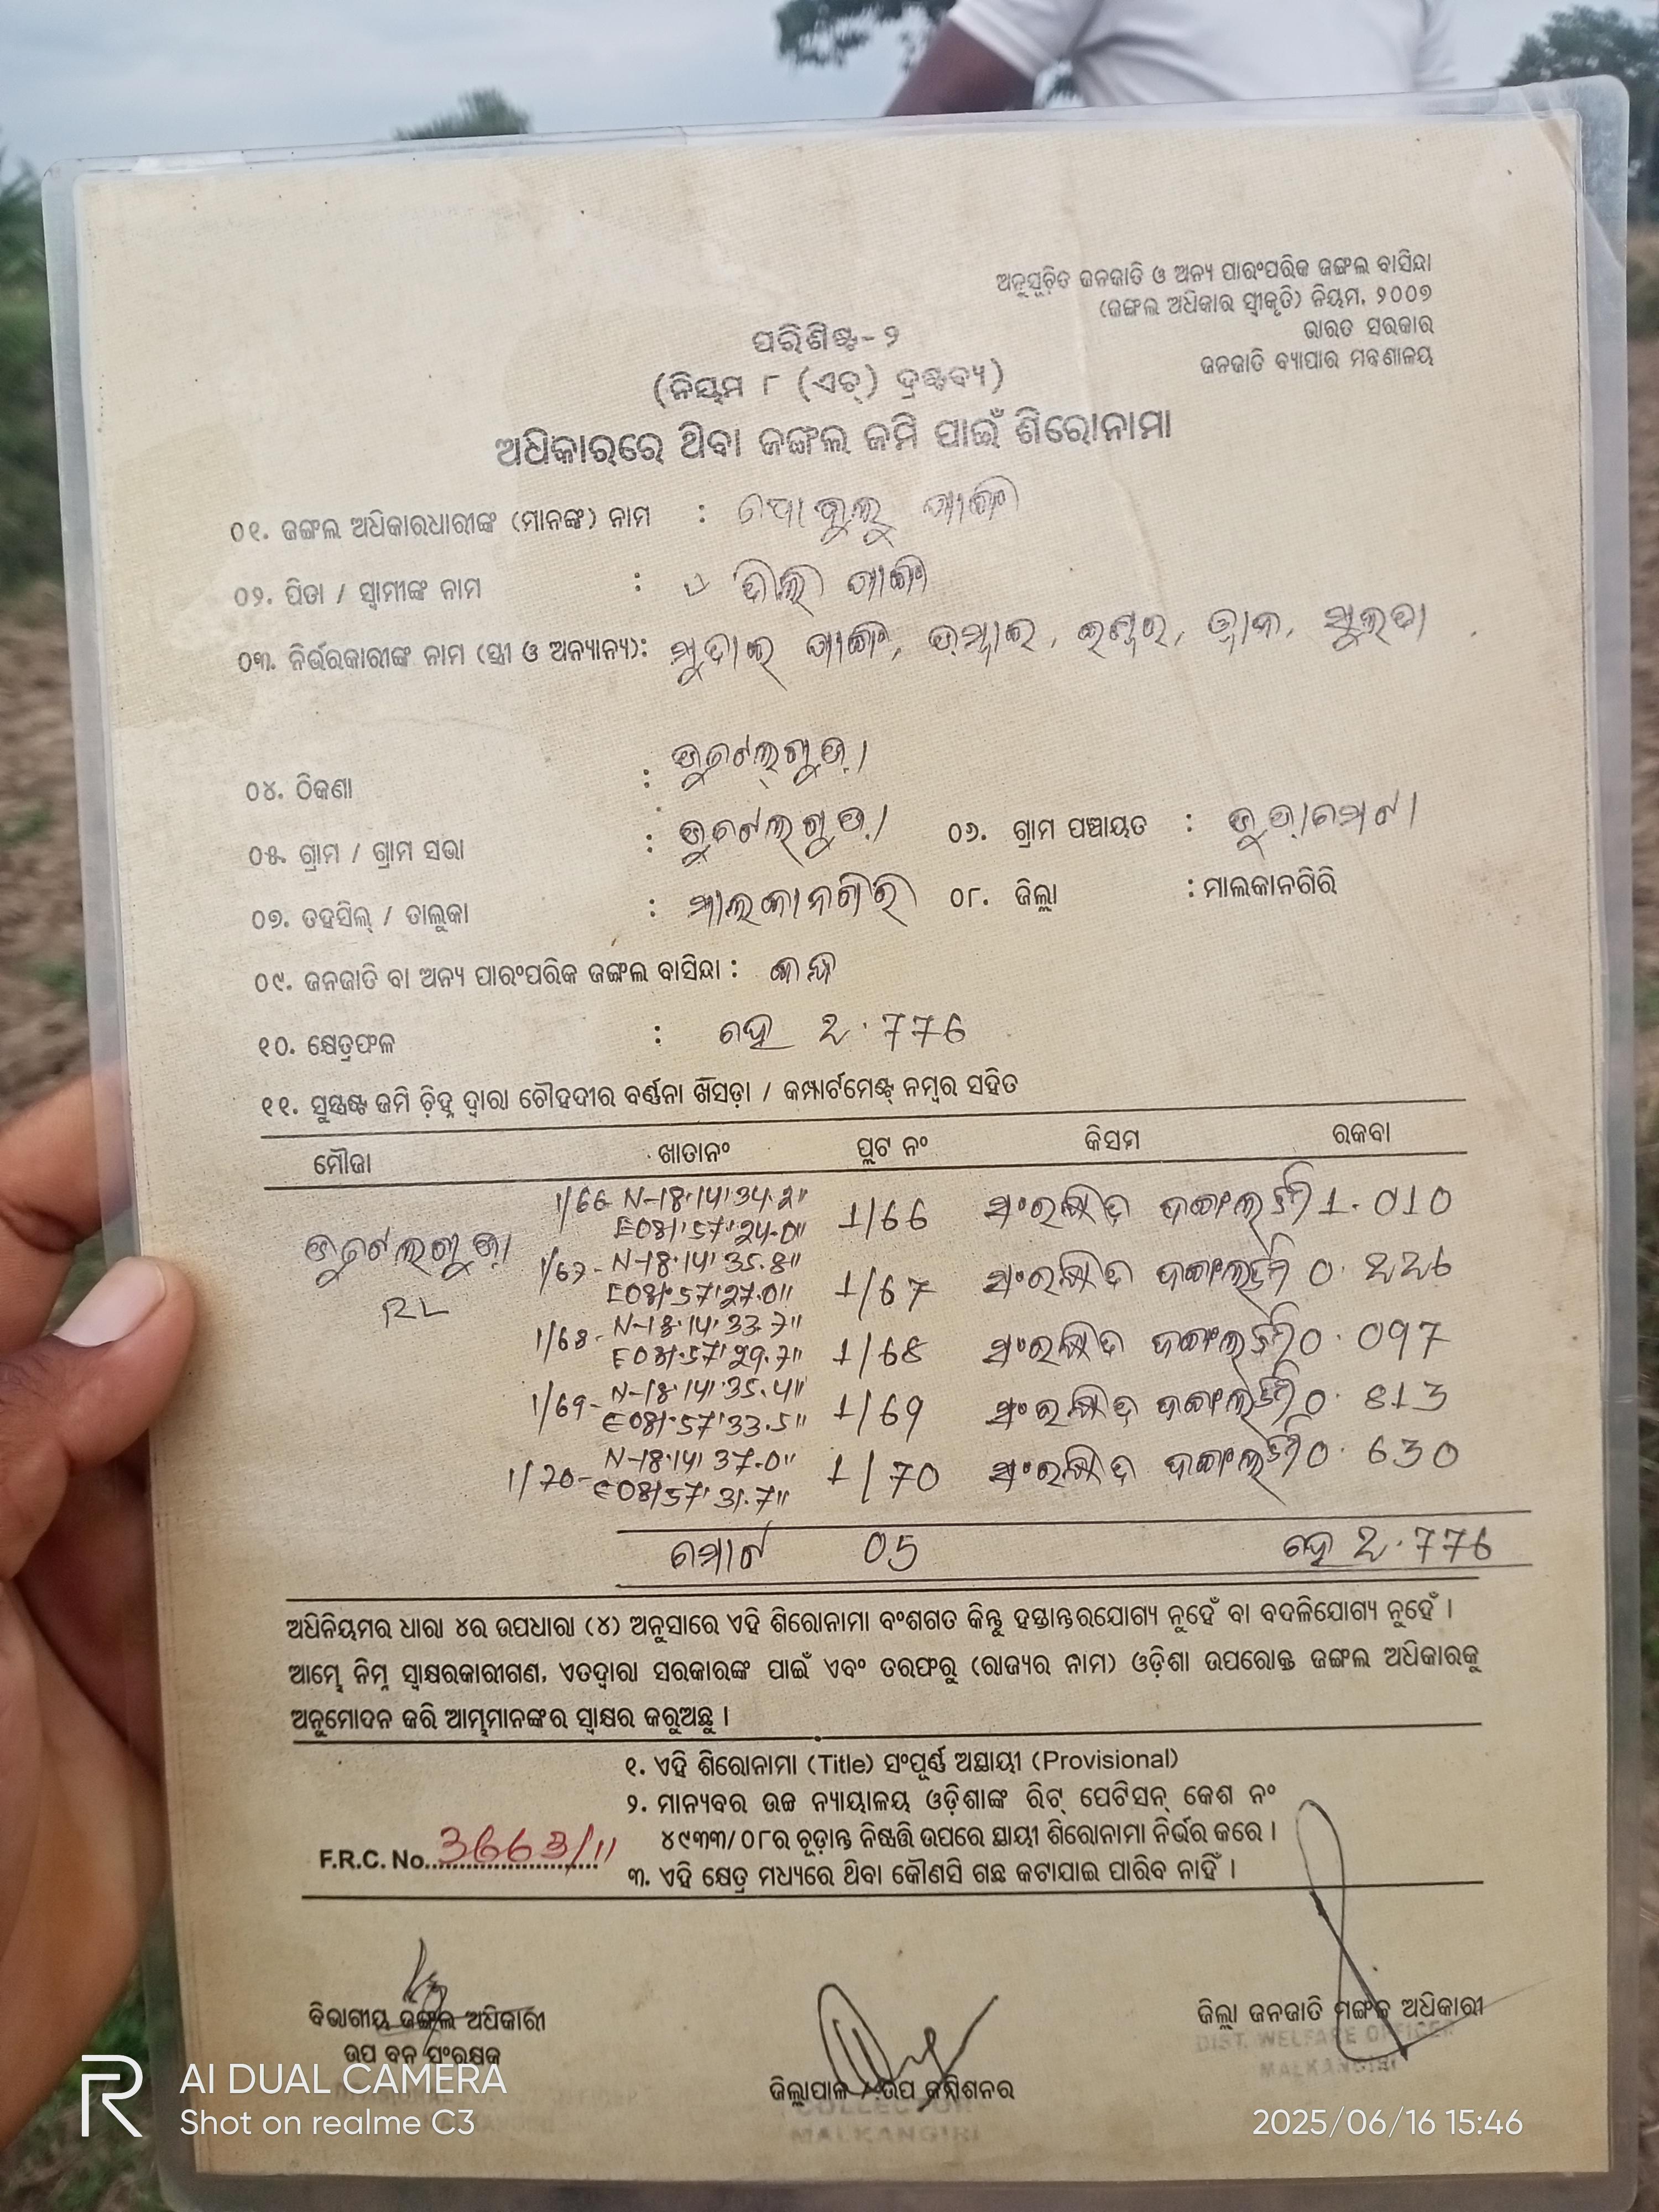 ଅନୁସୂଚିତ ଜନଜାତି ଓ ଅନ୍ୟ ପାରଂପରିକ ଜଙ୍ଗଲ ବାସିନ୍ଦା
(ଜଙ୍ଗଲ ଅଧିକାର ସ୍ୱୀକୃତି) ନିୟମ, ୨୦୦୭
ଭାରତ ସରକାର
ଜନଜାତି ବ୍ୟାପାର ମନ୍ତ୍ରଣାଳୟ
ପରିଶିଷ୍ଟ-୨
(ନିୟମ ୮ (ଏଚ୍) ଦ୍ରଷ୍ଟବ୍ୟ)
ଅଧିକାରରେ ଥିବା ଜଙ୍ଗଲ ଜମି ପାଇଁ ଶିରୋନାମା
୦୧. ଜଙ୍ଗଲ ଅଧିକାରଧାରୀଙ୍କ (ମାନଙ୍କ) ନାମ :
୦୨. ପିତା / ସ୍ୱାମୀଙ୍କ ନାମ :
୦୩. ନିର୍ଭରକାରୀଙ୍କ ନାମ (ସ୍ତ୍ରୀ ଓ ଅନ୍ୟାନ୍ୟ):
୦୪. ଠିକଣା :
୦୫. ଗ୍ରାମ / ଗ୍ରାମ ସଭା : ୦୬. ଗ୍ରାମ ପଞ୍ଚାୟତ :
୦୭. ତହସିଲ୍ / ତାଲୁକା : ମାଲକାନଗିରି ୦୮. ଜିଲ୍ଲା : ମାଲକାନଗିରି
୦୯. ଜନଜାତି ବା ଅନ୍ୟ ପାରଂପରିକ ଜଙ୍ଗଲ ବାସିନ୍ଦା :
୧୦. କ୍ଷେତ୍ରଫଳ : ହେ 2.776
୧୧. ସୁସ୍ପଷ୍ଟ ଜମି ଚିହ୍ନ ଦ୍ୱାରା ଚୌହଦୀର ବର୍ଣ୍ଣନା ଖସଡ଼ା / କମ୍ପାର୍ଟମେଣ୍ଟ୍ ନମ୍ବର ସହିତ
ମୌଜା ଖାତାନଂ ପ୍ଲଟ ନଂ କିସମ ରକବା
1/66 N-18°14'34.2" 1/66 ସଂରକ୍ଷିତ ଜଙ୍ଗଲ ଜମି 1.010
E081°57'24.0"
1/67- N-18°14'35.8" 1/67 ସଂରକ୍ଷିତ ଜଙ୍ଗଲ ଜମି 0.226
E081°57'27.0"
RL
1/68- N-18°14'33.7" 1/68 ସଂରକ୍ଷିତ ଜଙ୍ଗଲ ଜମି 0.097
E081°57'29.7"
1/69- N-18°14'35.4" 1/69 ସଂରକ୍ଷିତ ଜଙ୍ଗଲ ଜମି 0.813
E081°57'33.5"
1/70- N-18°14'37.0" 1/70 ସଂରକ୍ଷିତ ଜଙ୍ଗଲ ଜମି 0.630
E081°57'31.7"
ମୋଟ 05 ହେ 2.776
ଅଧିନିୟମର ଧାରା ୪ର ଉପଧାରା (୪) ଅନୁସାରେ ଏହି ଶିରୋନାମା ବଂଶଗତ କିନ୍ତୁ ହସ୍ତାନ୍ତରଯୋଗ୍ୟ ନୁହେଁ ବା ବଦଳିଯୋଗ୍ୟ ନୁହେଁ ।
ଆମ୍ଭେ ନିମ୍ନ ସ୍ୱାକ୍ଷରକାରୀଗଣ, ଏତଦ୍ୱାରା ସରକାରଙ୍କ ପାଇଁ ଏବଂ ତରଫରୁ (ରାଜ୍ୟର ନାମ) ଓଡ଼ିଶା ଉପରୋକ୍ତ ଜଙ୍ଗଲ ଅଧିକାରକୁ
ଅନୁମୋଦନ କରି ଆମ୍ଭମାନଙ୍କର ସ୍ୱାକ୍ଷର କରୁଅଛୁ ।
୧. ଏହି ଶିରୋନାମା (Title) ସଂପୂର୍ଣ୍ଣ ଅସ୍ଥାୟୀ (Provisional)
୨. ମାନ୍ୟବର ଉଚ୍ଚ ନ୍ୟାୟାଳୟ ଓଡ଼ିଶାଙ୍କ ରିଟ୍ ପେଟିସନ୍ କେଶ ନଂ
୪୯୩୩/୦୮ର ଚୂଡ଼ାନ୍ତ ନିଷ୍ପତ୍ତି ଉପରେ ସ୍ଥାୟୀ ଶିରୋନାମା ନିର୍ଭର କରେ ।
F.R.C. No. 3663/11
୩. ଏହି କ୍ଷେତ୍ର ମଧ୍ୟରେ ଥିବା କୌଣସି ଗଛ କଟାଯାଇ ପାରିବ ନାହିଁ ।
ବିଭାଗୀୟ ଜଙ୍ଗଲ ଅଧିକାରୀ
ଉପ ବନ ସଂରକ୍ଷକ
ଜିଲ୍ଲାପାଳ / ଉପ କମିଶନର
COLLECTOR
MALKANGIRI
ଜିଲ୍ଲା ଜନଜାତି ମଙ୍ଗଳ ଅଧିକାରୀ
DIST. WELFARE OFFICER
MALKANGIRI
AI DUAL CAMERA
Shot on realme C3
2025/06/16 15:46